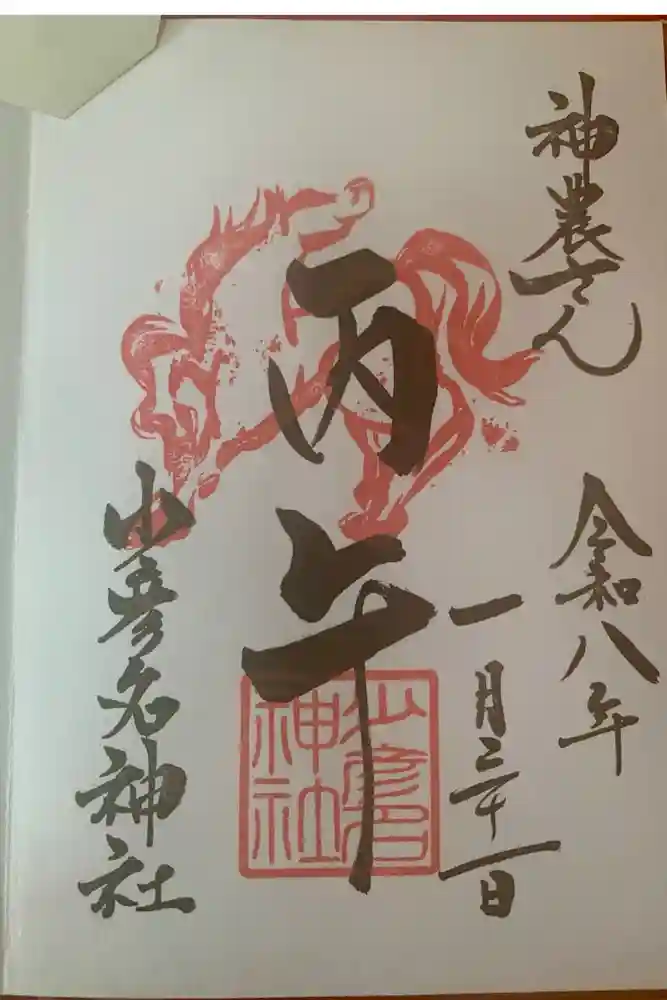 神農さん
令和八年
一月三十一日
丙午
少彦名
神社
少彦名神社